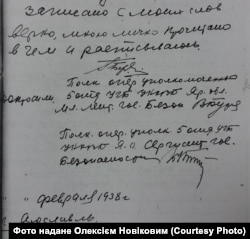 записано с моих слов
верно, мною лично прочитано
в чем и расписываюсь.
Пом. опер уполномоченного
5 отд УГБ УНКВД Яр. обл.
Мл. лейт. гос. Безоп
Пом. опер. уполн. 5 отд УГБ
УНКВД Я.О. Сержант гос.
Безопасности
" февраля 1938 г
г. Ярославль.
Фото надане Олексієм Новіковим (Courtesy Photo)